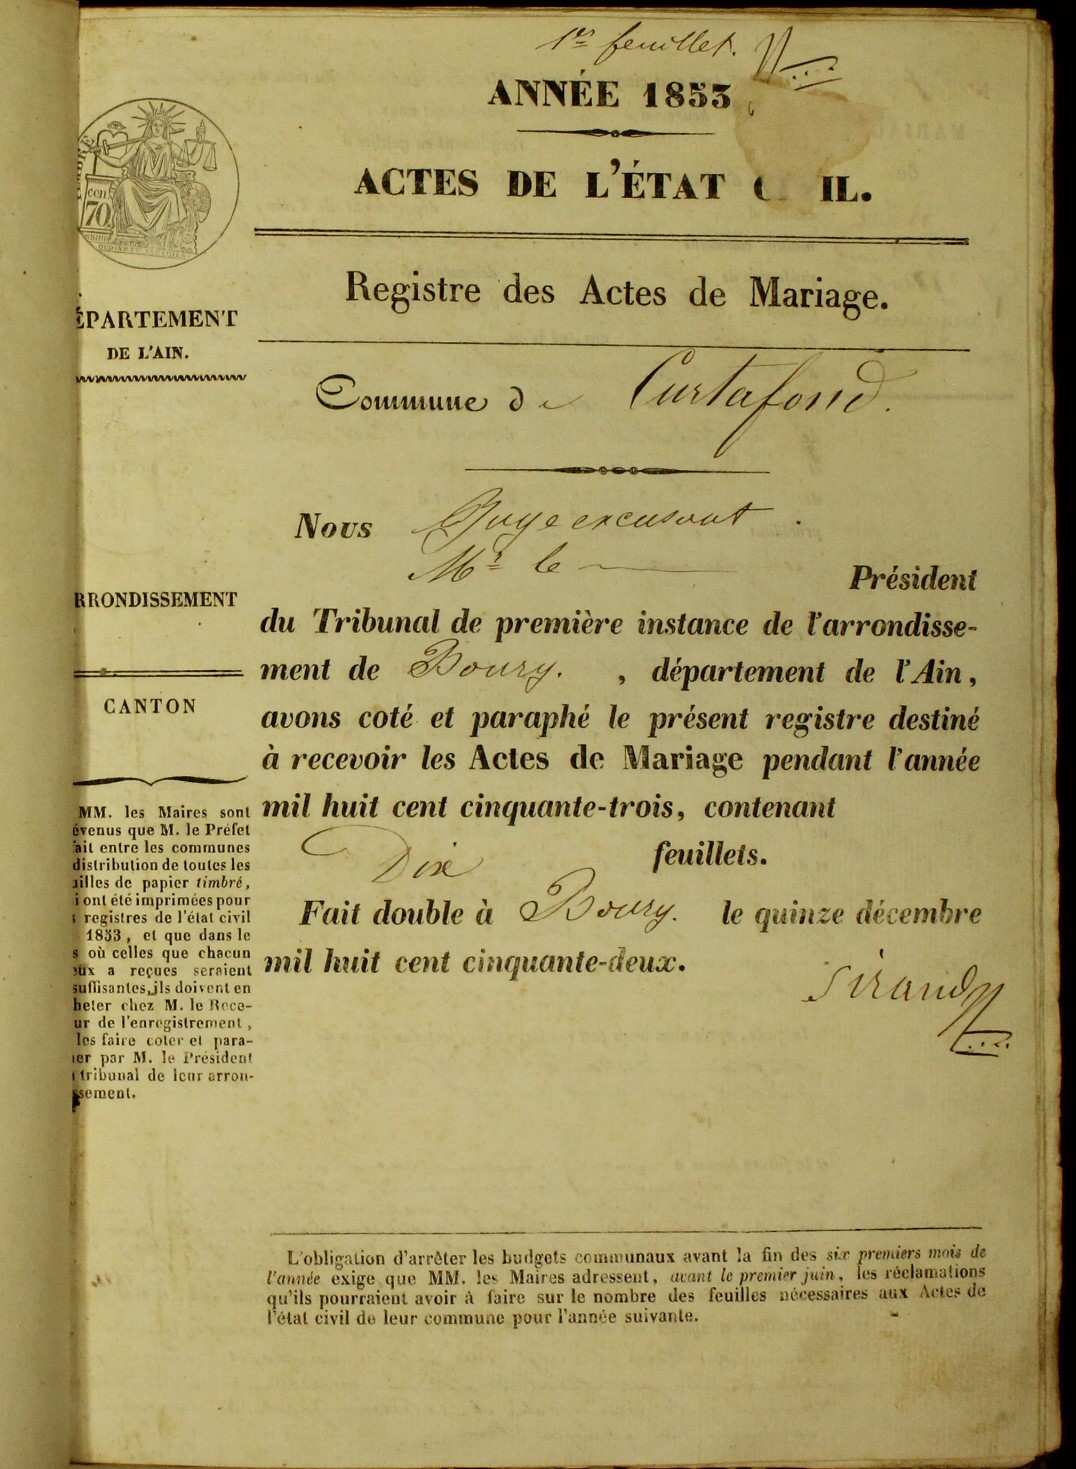 1er feuillet.
ANNÉE 1853
ACTES DE L'ÉTAT C IL.
Registre des Actes de Mariage.
con
70
ÉPARTEMENT
DE L'AIN.
Commune de Curtafond.
Nous Juge excusant
Mr le Président
du Tribunal de première instance de l'arrondisse-
ment de Bourg. , département de l'Ain,
avons coté et paraphé le présent registre destiné
à recevoir les Actes de Mariage pendant l'année
mil huit cent cinquante-trois, contenant
Dix feuillets.
Fait double à Bourg. le quinze décembre
mil huit cent cinquante-deux.
Sirand
RRONDISSEMENT
CANTON
MM. les Maires sont
évenus que M. le Préfet
fait entre les communes
distribution de toutes les
uilles de papier timbré,
i ont été imprimées pour
s registres de l'état civil
1853, et que dans le
s où celles que chacun
eux a reçues seraient
suffisantes, ils doivent en
heter chez M. le Rece-
ur de l'enregistrement,
les faire coter et para-
er par M. le Président
tribunal de leur arron-
ssement.
L'obligation d'arrêter les budgets communaux avant la fin des six premiers mois de
l'année exige que MM. les Maires adressent, avant le premier juin, les réclamations
qu'ils pourraient avoir à faire sur le nombre des feuilles nécessaires aux Actes de
l'état civil de leur commune pour l'année suivante.